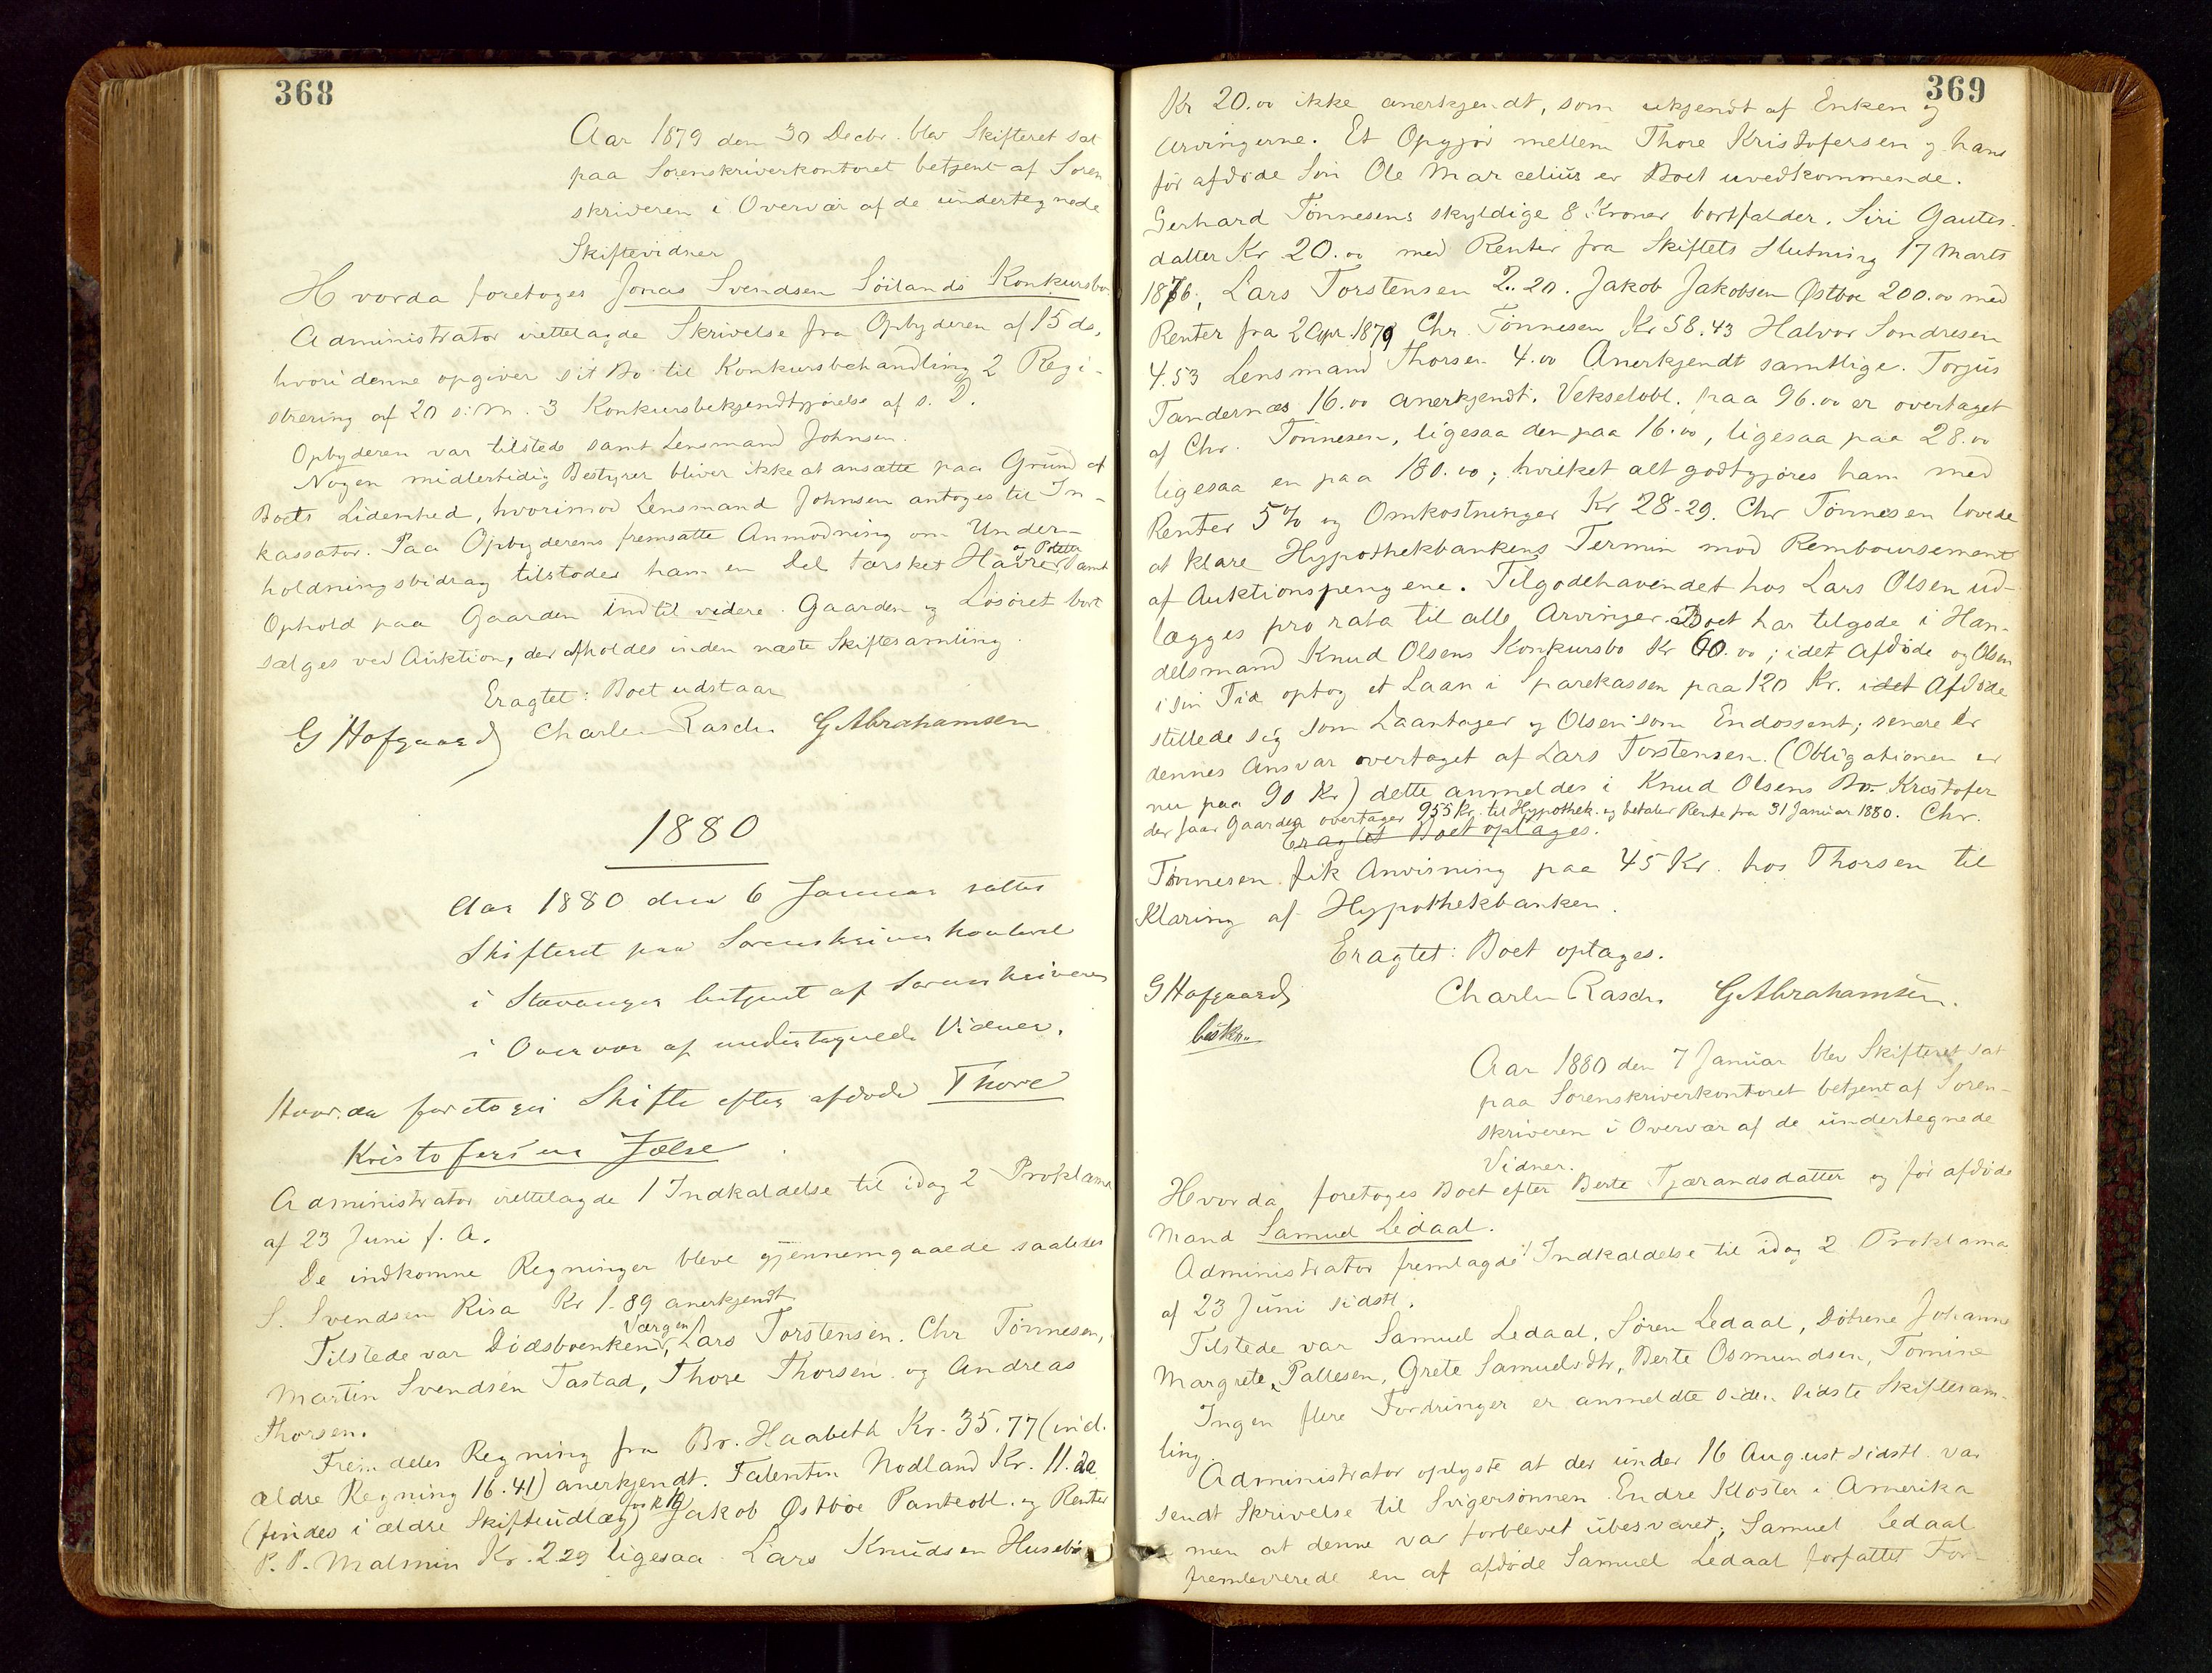 368
Aar 1879 den 30 Decbr. blev Skifteret sat
paa Sorenskriverkontoret betjent af Soren
skriveren i Overvær af de undertegnede
Skiftevidner
Hvorda foretoges Jonas Svendsen Söilands Konkursbo
Administrator irettelagde Skrivelse fra Opbyderen af 15 ds,
hvori denne opgiver sit Bo til Konkursbehandling 2 Regi-
strering af 20 s: M. 3 Konkursbekjendtgjörelse af s. D.
Opbyderen var tilstede samt Lensmand Johnsen.
Nogen midlertidig Bestyrer bliver ikke at ansætte paa Grund af
Boets Lidenhed, hvorimod Lensmand Johnsen antoges til In-
kassator. Paa Opbyderens fremsatte Anmodning om Under-
holdningsbidrag tilstodes ham en Del tærsket Havre og Poteter samt
Ophold paa Gaarden indtil videre. Gaarden og Lösöret bort
sælges ved Auktion, der afholdes inden næste Skiftesamling.
Eragtet: Boet udstaar
G Hofgaard Charles Rasch. G Abrahamsen
1880
Aar 1880 den 6 Januar sattes
Skifteret paa Sorenskriverkontoret
i Stavanger betjent af Sorenskriveren
i Overvær af undertegnede Vidner.
Hvor da foretoges Skifte efter afdöde Thore
Kristofersen Jælse
Administrator irettelagde 1 Indkaldelse til idag 2 Proklama
af 23 Juni f. A.
De indkomne Regninger bleve gjennemgaaede saaledes
S. Svendsen Risa Kr 1.89 anerkjendt
Tilstede var Dödsboenkens Værgen, Lars Torstensen. Chr Tönnesen,
Martin Svendsen Tastad, Thore Thorsen og Andreas
Thorsen.
Fremdeles Regning fra Br. Haabeth Kr. 35.77 (incl.
ældre Regning 16.41) anerkjendt. Falentin Nodland Kr. 11.20
(findes i ældre Skifteudlæg) Jakob Østböe Panteobl. og Renter
P. P. Malmin Kr. 2.29 ligesaa. Lars Knudsen Husebö
369
Kr 20.00 ikke anerkjendt, som ukjendt af Enken og
Arvingerne. Et Opgjör mellem Thore Kristofersen og hans
för afdöde Sön Ole Marcelius er Boet uvedkommende.
Gerhard Tönnesens skyldige 8 Kroner bortfalder. Siri Gautes-
datter Kr 20.00 med Renter fra Skiftets Slutning 17 Marts
1876; Lars Torstensen 2.20. Jakob Jakobsen Østböe 200.00 med
Renter fra 2 Apr. 1879 Chr Tönnesen Kr 58.43 Halvor Sondresen
4.53 Lensmand Thorsen 4.00 Anerkjendt samtlige. Torjus
Tandernæs 16.00 anerkjendt. Vekselobl. paa 96.00 er overtaget
af Chr. Tönnesen, ligesaa den paa 16.00, ligesaa paa 28.00
ligesaa en paa 180.00; hvilket alt godtgjöres ham med
Renter 5% og Omkostninger Kr 28-29. Chr Tönnesen lovede
at klare Hypothekbankens Termin mod Remboursement
af Auktionspengene. Tilgodehavendet hos Lars Olsen ud-
lægges pro rata til alle Arvinger. Boet har tilgode i Han-
delsmand Knud Olsens Konkursbo Kr 60.00; idet Afdöde og Olsen
i sin Tid optog et Laan i Sparekassen paa 120 Kr. idet Afdöde
stillede sig som Laantager og Olsen som Endossent; senere er
dennes Ansvar overtaget af Lars Torstensen. (Obligationen er
nu paa 90 Kr) dette anmeldes i Knud Olsens Bo. Kristofer
der faar Gaarden overtager 955 Kr. til Hypothek. og betaler Rente fra 31 Januar 1880. Chr.
Eragtet Boet optages.
Tönnesen fik Anvisning paa 45 Kr. hos Thorsen til
Klaring af Hypothekbanken.
Eragtet: Boet optages.
G Hofgaard Charles Rasch. G Abrahamsen.
Aar 1880 den 7 Januar blev Skifteret sat
paa Sorenskriverkontoret betjent af Soren-
skriveren i Overvær af de undertegnede
Vidner.
Hvorda foretoges Boet efter Berte Tjærandsdatter og för afdöde
Mand Samuel Ledaal.
Administrator fremlagde 1 Indkaldelse til idag 2 Proklama
af 23 Juni sidstl.
Tilstede var Samuel Ledaal, Sören Ledaal, Dötrene Johanne
Margrete Pallesen, Grete Samuelsdtr, Berte Osmundsen, Tomine
Ingen flere Fordringer er anmeldte siden sidste Skiftesam-
ling
Administrator oplyste at der under 16 August sidstl. var
sendt Skrivelse til Svigersönnen Endre Kloster i Amerika
men at denne var forblevet ubesvaret; Samuel Ledaal
fremleverede en af afdöde Samuel Ledaal forfattet For-